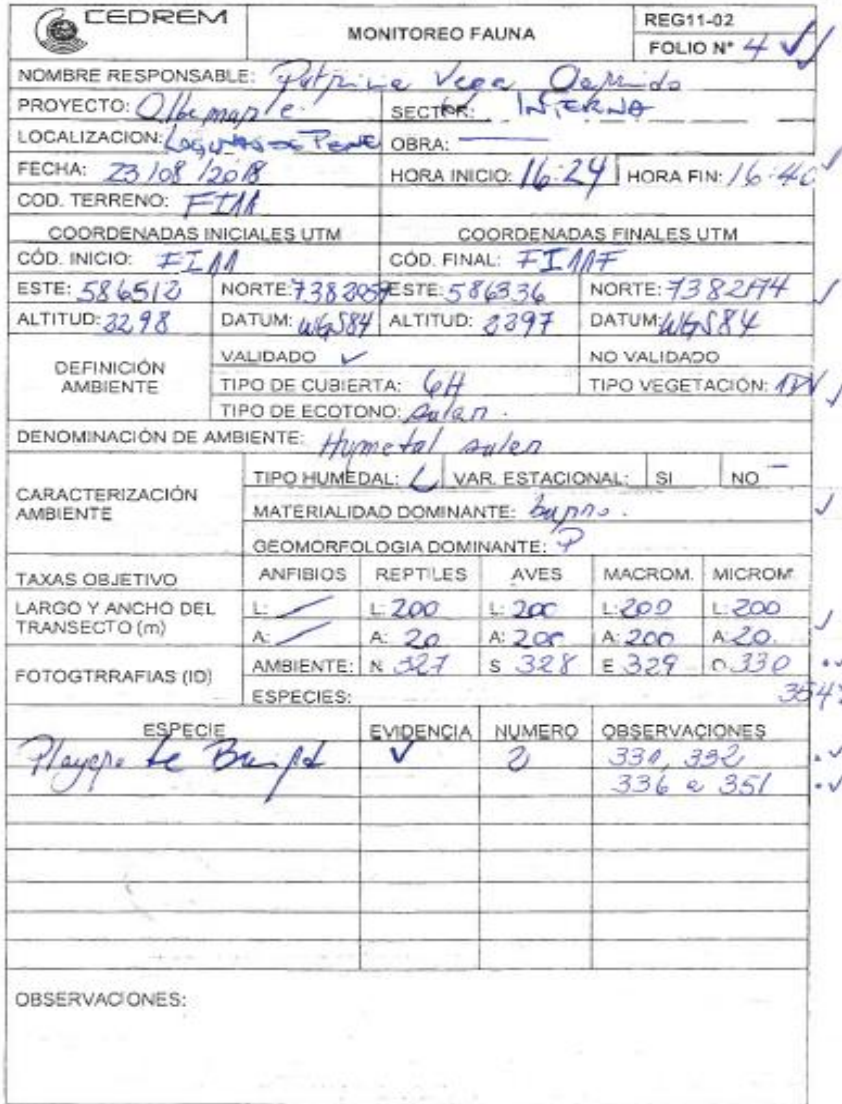 CEDREM
MONITOREO FAUNA
REG11-02
FOLIO N° 4
NOMBRE RESPONSABLE: Vega
PROYECTO: SECTOR: INTERNA
LOCALIZACION: LAGUNAS OBRA:
FECHA: 23/08/2018 HORA INICIO: 16:24 HORA FIN: 16:40
COD. TERRENO: FI11
COORDENADAS INICIALES UTM COORDENADAS FINALES UTM
CÓD. INICIO: FI11 COD. FINAL: FI11F
ESTE: 586512 NORTE: ESTE: 586336 NORTE:
ALTITUD: 2298 DATUM: WGS84 ALTITUD: DATUM: WGS84
DEFINICIÓN AMBIENTE
VALIDADO ✓ NO VALIDADO
TIPO DE CUBIERTA: 6H TIPO VEGETACIÓN:
TIPO DE ECOTONO:
DENOMINACIÓN DE AMBIENTE:
CARACTERIZACIÓN AMBIENTE
TIPO HUMEDAL: L VAR. ESTACIONAL: SI NO
MATERIALIDAD DOMINANTE:
GEOMORFOLOGIA DOMINANTE: P
TAXAS OBJETIVO ANFIBIOS REPTILES AVES MACROM. MICROM
LARGO Y ANCHO DEL TRANSECTO (m)
L: L: 200 L: 200 L: 200 L: 200
A: A: 20 A: 200 A: 200 A: 20.
FOTOGTRRAFIAS (ID)
AMBIENTE: N 327 S 328 E 329 O 330
ESPECIES:
ESPECIE EVIDENCIA NUMERO OBSERVACIONES
de Baird ✓ 2 332
336 a 351
OBSERVACIONES: